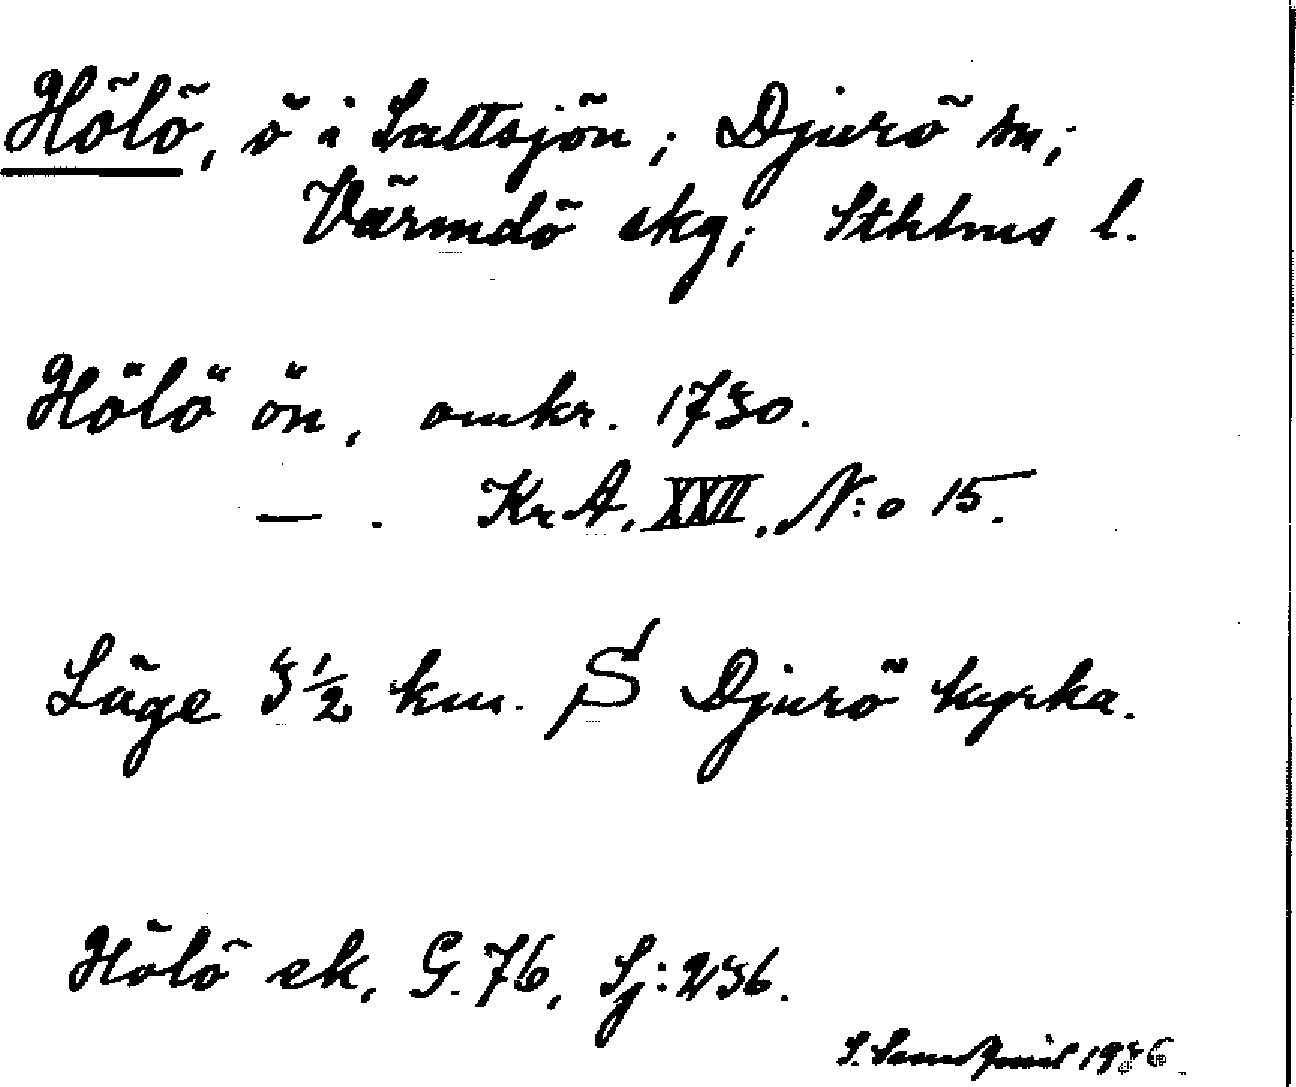 Hölö, ö i Saltsjön; Djurö sn;
Värmdö skg; Sthlms l.
Hölö ön, omkr. 1730.
— . KrA. XXVII. N:o 15.
Läge 3½ km. S Djurö kyrka.
Hölö ek, G. 76, Sj: 236.
S. 1936